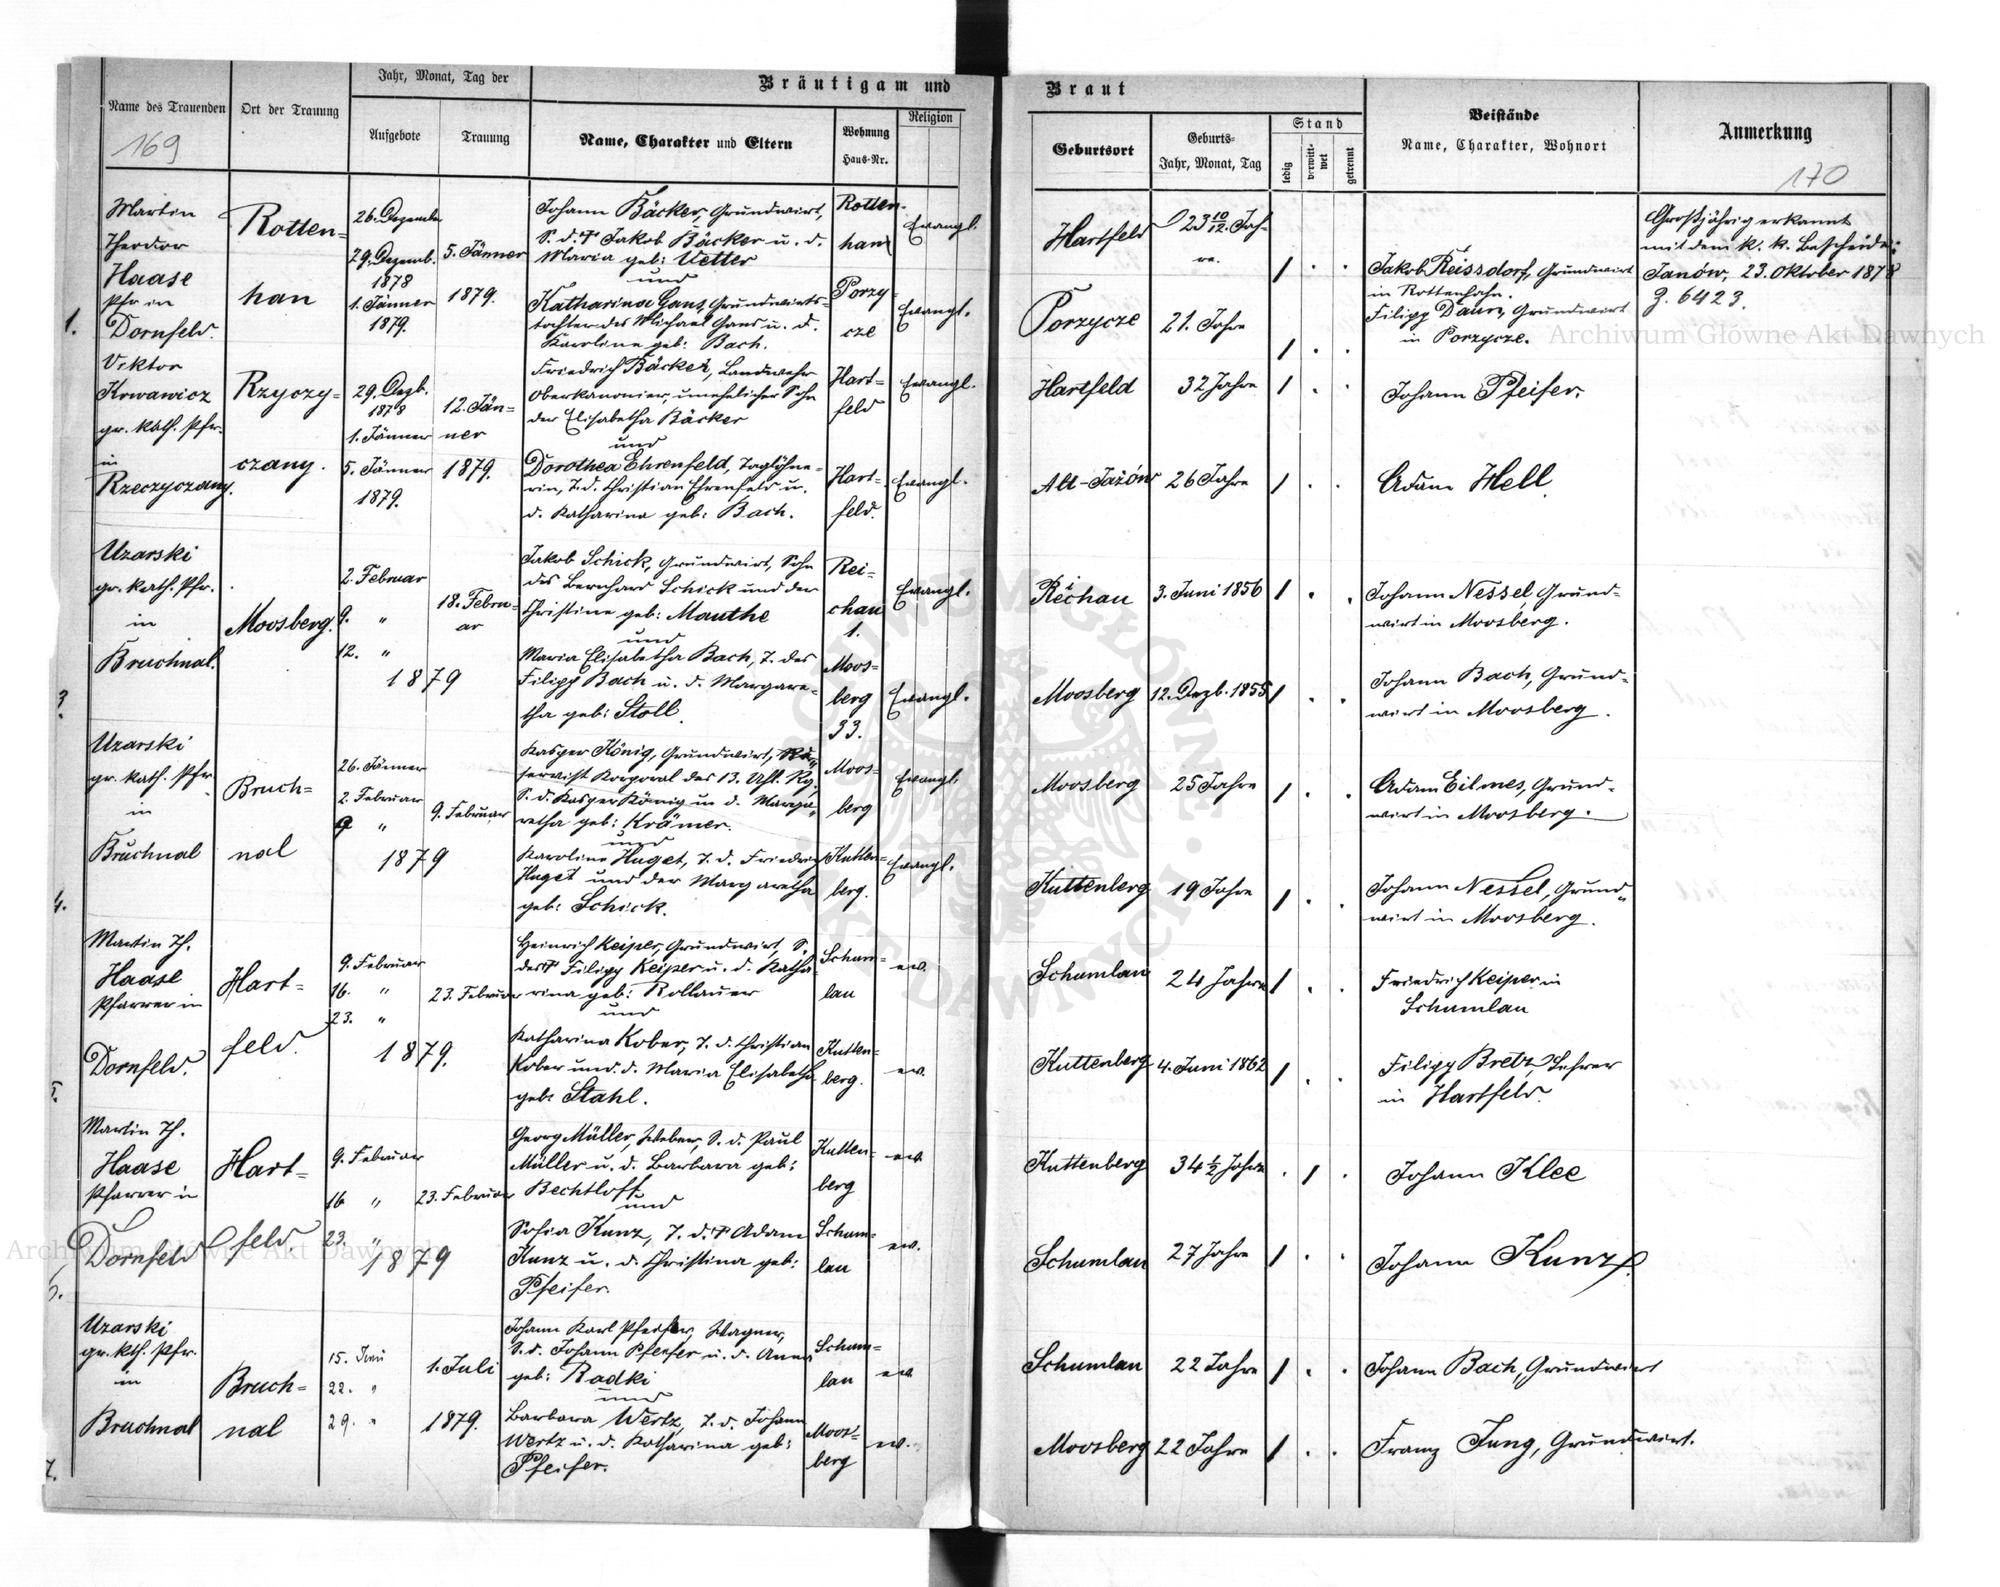 Jahr, Monat, Tag der
Bräutigam und
Name des Trauenden
Ort der Trauung
Aufgebote
Trauung
Name, Charakter und Eltern
Wohnung
Haus-Nr.
Religion
169
Braut
Geburtsort
Geburts-
Jahr, Monat, Tag
Stand
ledig
verwitt-
wet
getrennt
Beistände
Name, Charakter, Wohnort
Anmerkung
170
1.
Martin
Theodor
Haase
Pfr in
Dornfeld.
Rotten=
han
26. Dezembe
29. Dezemb.
1878
1. Jänner
1879.
5. Jänner
1879.
Johann Bäcker, Grundwirt,
S. d. † Jakob Bäcker u. d.
Maria geb: Vetter
und
Katharina Gans, Grundwirts-
tochter des Michael Gans u. d.
Karoline geb: Bach.
Rotten-
han
Porzy-
cze
Evangl.
Evangl.
Hartfeld
23 10/12. Jah-
re.
Porzycze
21. Jahre
Jakob Reissdorf, Grundwirt
in Rottenhahn.
Filipp Daum, Grundwirt
in Porzycze.
Großjährig erkannt
mit dem k. k. Bescheide:
Janów, 23. Oktober 1878
Z. 6423.
Viktor
Krwawicz
gr. kath. Pfr.
in
Rzeczyczany.
Rzyczy-
czany.
29. Dezb.
1878
1. Jänner
5. Jänner
1879.
12. Jän-
ner
1879.
Friedrich Bäcker, Landwehr
Oberkanonier, unehelicher Sohn
der Elisabetha Bäcker
und
Dorothea Ehrenfeld, Taglöhne-
rin, T. d. Christian Ehrenfeld u.
d. Katharina geb: Bach.
Hart-
feld
Hart-
feld.
Evangl.
Evangl.
Hartfeld
32 Jahre
Alt-Jażów
26 Jahre
Johann Pfeifer.
Adam Hell.
3.
Uzarski
gr. kath. Pfr.
in
Bruchnal.
Moosberg.
2. Februar
9. "
12. "
18. Febru-
ar
1879
Jakob Schick, Grundwirt, Sohn
des Bernhard Schick und der
Christine geb: Mauthe
und
Maria Elisabetha Bach, T. des
Filipp Bach u. d. Margare-
tha geb: Stoll.
Rei-
chau
1.
Moos-
berg
33.
Evangl.
Evangl.
Reichau
3. Juni 1856
Moosberg
12. Dezb. 1855
Johann Nessel, Grund-
wirt in Moosberg.
Johann Bach, Grund-
wirt in Moosberg.
4.
Uzarski
gr. kath. Pfr
in
Bruchnal
Bruch=
nal
26. Jänner
2. Februar
9 "
9. Februar
1879
Kasper König, Grundwirt, Re-
servist Korporal des 13. Uhl. Rg.
S. d. Kasper König u d. Marga-
retha geb: Krämer.
und
Karoline Huget, T. d. Friedrich
Huget und der Margaretha
geb: Schick.
Moos-
berg
Kutten-
berg.
Evangl.
Evangl.
Moosberg
25 Jahre
Kuttenberg
19 Jahre
Adam Eilmes, Grund-
wirt in Moosberg.
Johann Nessel, Grund-
wirt in Moosberg.
5.
Martin Th.
Haase
Pfarrer in
Dornfeld.
Hart-
feld.
9. Februar
16. "
23. "
23. Februar
1879.
Heinrich Keiper, Grundwirt, S.
des † Filipp Keiper u. d. Katha-
rina geb: Rollauer
und
Katharina Kober, T. d. Christian
Kober und. d. Maria Elisabetha
geb: Stahl.
Schum-
lau
Kutten-
berg.
ev.
ev.
Schumlau
24 Jahre
Kuttenberg
4. Juni 1862
Friedrich Keiper in
Schumlau
Filipp Bretz, Lehrer
in Hartfeld.
6.
Martin Th.
Haase
Pfarrer in
Dornfeld
Hart-
feld
9. Februar
16 "
23. "
23. Februar
1879
Georg Müller, Weber, S. d. Paul
Müller u. d. Barbara geb:
Bechtloff
und
Sofia Kunz, T. d. † Adam
Kunz u. d. Christina geb:
Pfeifer.
Kutten-
berg
Schum-
lau
ev.
ev.
Kuttenberg
34 1/2 Jahre
Schumlau
27 Jahre
Johann Klee
Johann Kunz.
7.
Uzarski
gr. kth. Pfr.
in
Bruchnal
Bruch-
nal
15. Juni
22. "
29. "
1. Juli
1879.
Johann Karl Pfeifer, Wagner,
S. d. Johann Pfeifer u. d. Anna
geb: Radki
und
Barbara Wertz, T. d. Johann
Wertz u. d. Katharina geb:
Pfeifer.
Schum-
lau
Moos-
berg
ev.
ev.
Schumlau
22 Jahre
Moosberg
22 Jahre
Johann Bach, Grundwirt
Franz Jung, Grundwirt.
Archiwum Główne Akt Dawnych
Archiwum Główne Akt Dawnych